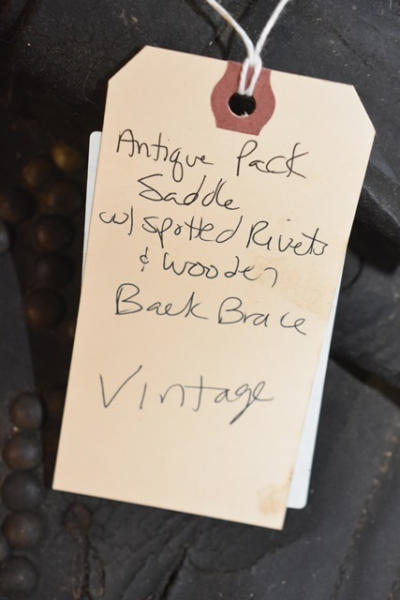 Antique Pack
Saddle
w/ Spotted Rivets
& Wooden
Back Brace
Vintage